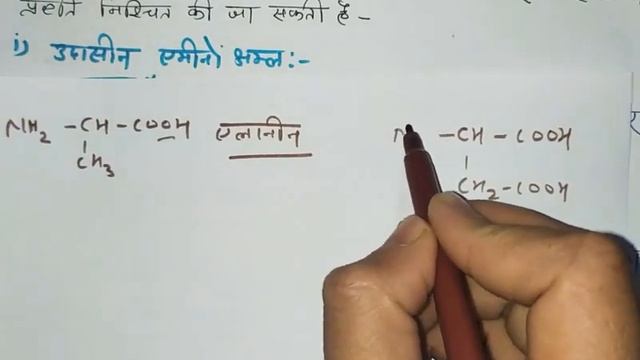 प्रकृति निश्चित की जा सकती है -
i) उदासीन एमीनो अम्ल :-
NH₂ - CH - COOH एलानीन
CH₃
N - CH - COOH
CH₂ - COOH